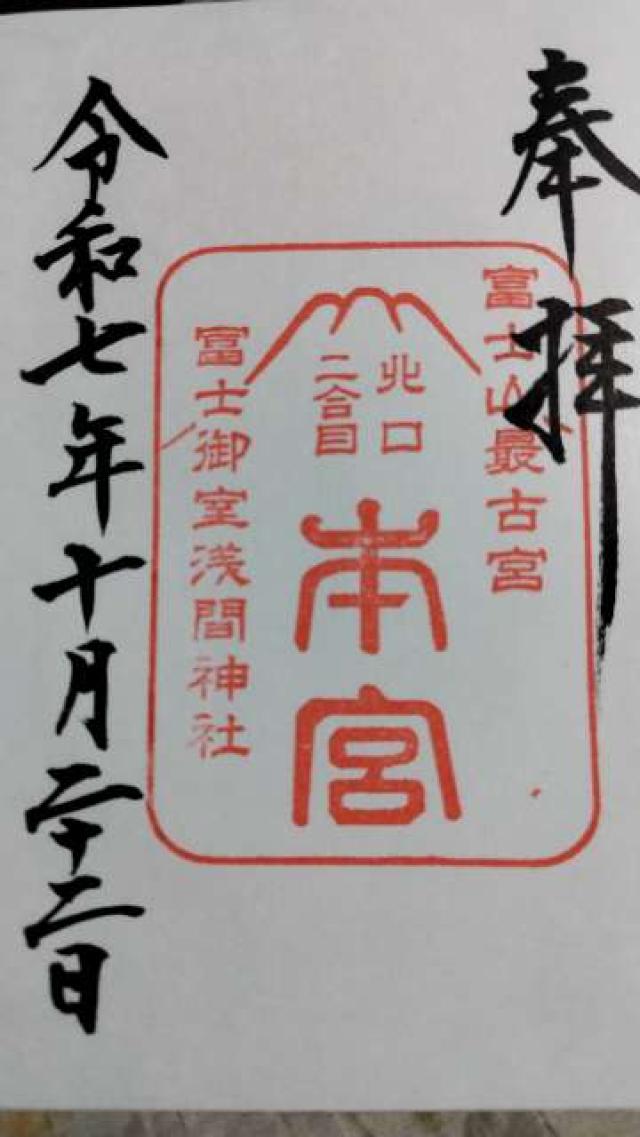 奉拝
富士山最古宮
北口
二合目
本宮
富士御室浅間神社
令和七年十月二十二日